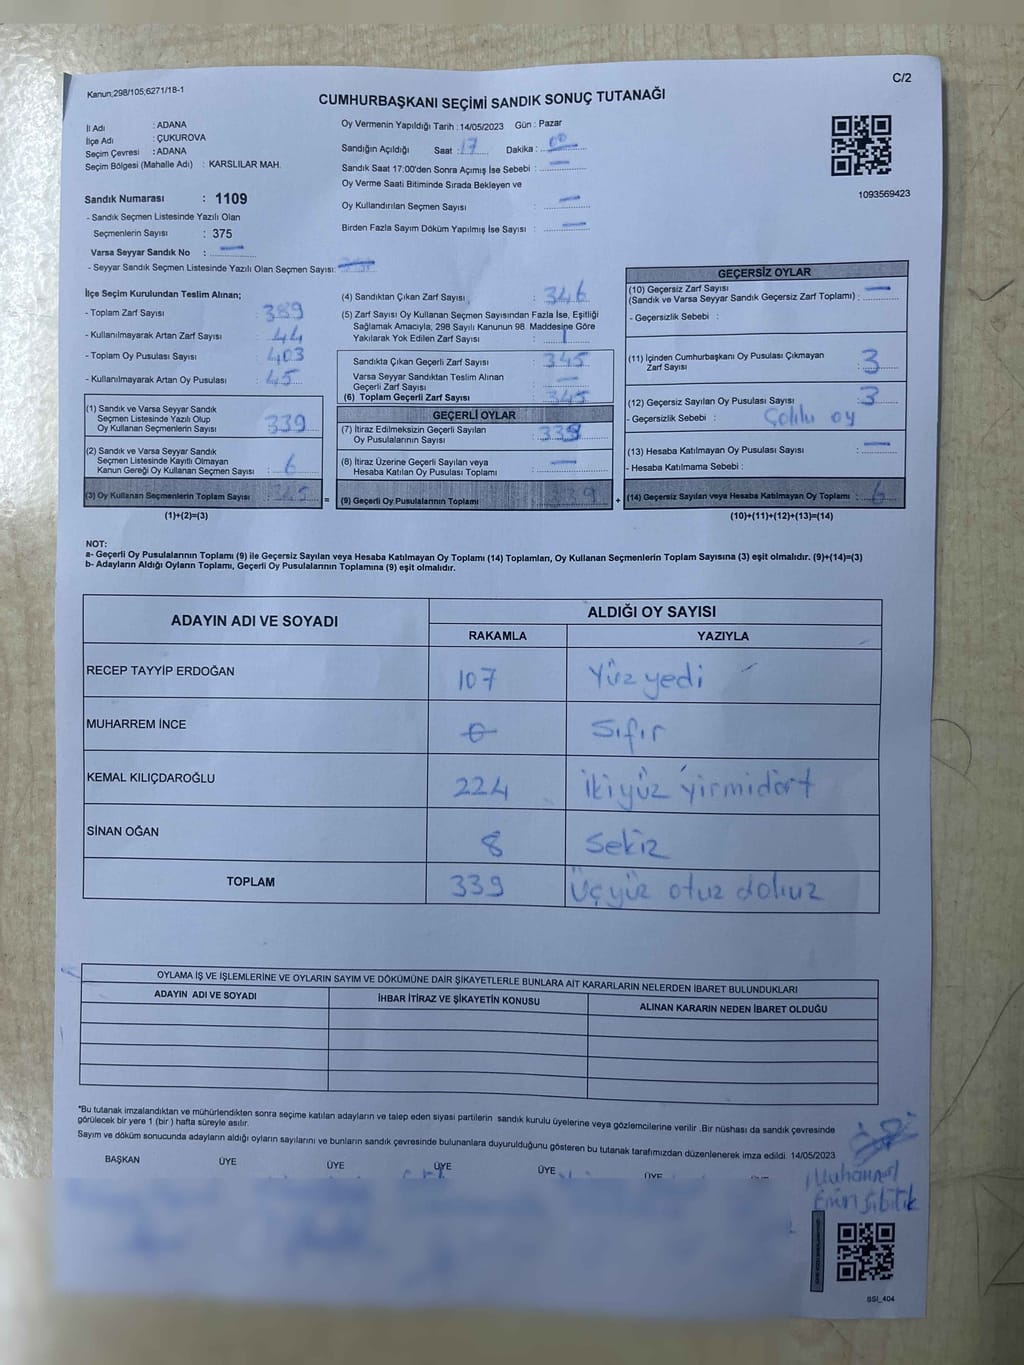 Kanun;298/105;6271/18-1
C/2
CUMHURBAŞKANI SEÇİMİ SANDIK SONUÇ TUTANAĞI
İl Adı : ADANA
İlçe Adı : ÇUKUROVA
Seçim Çevresi : ADANA
Seçim Bölgesi (Mahalle Adı) : KARSLILAR MAH.
Sandık Numarası : 1109
- Sandık Seçmen Listesinde Yazılı Olan
Seçmenlerin Sayısı : 375
Varsa Seyyar Sandık No : —
- Seyyar Sandık Seçmen Listesinde Yazılı Olan Seçmen Sayısı:
Oy Vermenin Yapıldığı Tarih : 14/05/2023 Gün : Pazar
Sandığın Açıldığı Saat : 17 Dakika : 00
Sandık Saat 17:00'den Sonra Açımış İse Sebebi : —
Oy Verme Saati Bitiminde Sırada Bekleyen ve
Oy Kullandırılan Seçmen Sayısı : —
Birden Fazla Sayım Döküm Yapılmış İse Sayısı : —
1093569423
İlçe Seçim Kurulundan Teslim Alınan;
- Toplam Zarf Sayısı : 389
- Kullanılmayarak Artan Zarf Sayısı : 44
- Toplam Oy Pusulası Sayısı : 403
- Kullanılmayarak Artan Oy Pusulası : 45
(1) Sandık ve Varsa Seyyar Sandık
Seçmen Listesinde Yazılı Olup
Oy Kullanan Seçmenlerin Sayısı : 339
(2) Sandık ve Varsa Seyyar Sandık
Seçmen Listesinde Kayıtlı Olmayan
Kanun Gereği Oy Kullanan Seçmen Sayısı : 6
(3) Oy Kullanan Seçmenlerin Toplam Sayısı : 345
(1)+(2)=(3)
=
(4) Sandıktan Çıkan Zarf Sayısı : 346
(5) Zarf Sayısı Oy Kullanan Seçmen Sayısından Fazla İse, Eşitliği
Sağlamak Amacıyla, 298 Sayılı Kanunun 98. Maddesine Göre
Yakılarak Yok Edilen Zarf Sayısı : 1
Sandıkta Çıkan Geçerli Zarf Sayısı : 345
Varsa Seyyar Sandıktan Teslim Alınan
Geçerli Zarf Sayısı : —
(6) Toplam Geçerli Zarf Sayısı : 345
GEÇERLİ OYLAR
(7) İtiraz Edilmeksizin Geçerli Sayılan
Oy Pusulalarının Sayısı : 339
(8) İtiraz Üzerine Geçerli Sayılan veya
Hesaba Katılan Oy Pusulası Toplamı : —
(9) Geçerli Oy Pusulalarının Toplamı : 339
+
GEÇERSİZ OYLAR
(10) Geçersiz Zarf Sayısı
(Sandık ve Varsa Seyyar Sandık Geçersiz Zarf Toplamı) : —
- Geçersizlik Sebebi :
(11) İçinden Cumhurbaşkanı Oy Pusulası Çıkmayan
Zarf Sayısı : 3
(12) Geçersiz Sayılan Oy Pusulası Sayısı : 3
- Geçersizlik Sebebi : oy
(13) Hesaba Katılmayan Oy Pusulası Sayısı : —
- Hesaba Katılmama Sebebi :
(14) Geçersiz Sayılan veya Hesaba Katılmayan Oy Toplamı : 6
(10)+(11)+(12)+(13)=(14)
NOT:
a- Geçerli Oy Pusulalarının Toplamı (9) ile Geçersiz Sayılan veya Hesaba Katılmayan Oy Toplamı (14) Toplamları, Oy Kullanan Seçmenlerin Toplam Sayısına (3) eşit olmalıdır. (9)+(14)=(3)
b- Adayların Aldığı Oyların Toplamı, Geçerli Oy Pusulalarının Toplamına (9) eşit olmalıdır.
ADAYIN ADI VE SOYADI
ALDIĞI OY SAYISI
RAKAMLA YAZIYLA
RECEP TAYYİP ERDOĞAN 107 Yüz yedi
MUHARREM İNCE 0 Sıfır
KEMAL KILIÇDAROĞLU 224 ikiyüz yirmidört
SİNAN OĞAN 8 Sekiz
TOPLAM 339 Üçyüz otuz dokuz
OYLAMA İŞ VE İŞLEMLERİNE VE OYLARIN SAYIM VE DÖKÜMÜNE DAİR ŞİKAYETLERLE BUNLARA AİT KARARLARIN NELERDEN İBARET BULUNDUKLARI
ADAYIN ADI VE SOYADI İHBAR İTİRAZ VE ŞİKAYETİN KONUSU ALINAN KARARIN NEDEN İBARET OLDUĞU
*Bu tutanak imzalandıktan ve mühürlendikten sonra seçime katılan adayların ve talep eden siyasi partilerin sandık kurulu üyelerine veya gözlemcilerine verilir .Bir nüshası da sandık çevresinde
görülecek bir yere 1 (bir ) hafta süreyle asılır.
Sayım ve döküm sonucunda adayların aldığı oyların sayılarını ve bunların sandık çevresinde bulunanlara duyurulduğunu gösteren bu tutanak tarafımızdan düzenlenerek imza edildi. 14/05/2023
BAŞKAN ÜYE ÜYE ÜYE ÜYE ÜYE
SSI_404